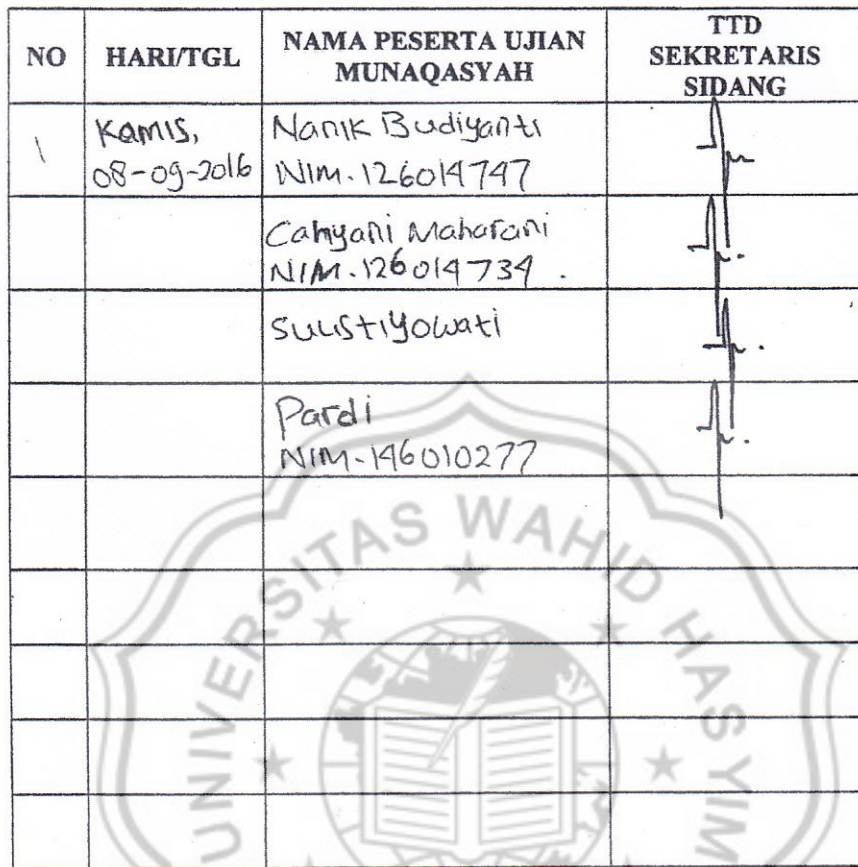 NO HARI/TGL NAMA PESERTA UJIAN MUNAQASYAH TTD SEKRETARIS SIDANG
1 Kamis, Nanik Budiyanti
08-09-2016 NIM. 126014747
Cahyani Maharani
NIM. 126014734 .
Sulistiyowati
Pardi
NIM. 146010277
UNIVERSITAS WAHID HASYIM